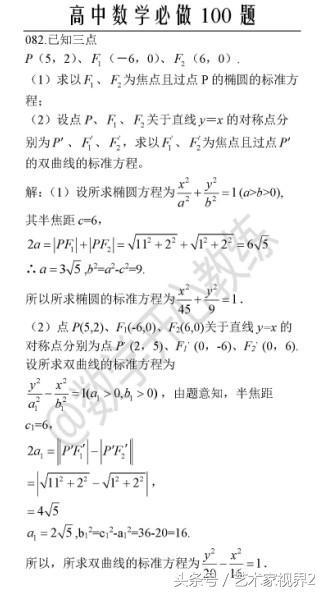 高中数学必做100题
082.已知三点
P（5，2）、F₁（－6，0）、F₂（6，0）.
（1）求以F₁、F₂为焦点且过点 P 的椭圆的标准方
程；
（2）设点 P、F₁、F₂关于直线y＝x 的对称点分
别为P′、F₁′、F₂′，求以F₁′、F₂′为焦点且过点P′
的双曲线的标准方程。
解：（1）设所求椭圆方程为x²/a² + y²/b² =1(a>b>0),
其半焦距 c=6,
2a=|PF₁|+|PF₂|=√(11²+2²)+√(1²+2²)=6√5
∴ a=3√5 ,b²=a²-c²=9.
所以所求椭圆的标准方程为x²/45 + y²/9 =1．
（2）点 P(5,2)、F₁(-6,0)、F₂(6,0)关于直线 y=x 的
对称点分别为点 P′ (2，5)、F₁′ (0，-6)、F₂′ (0，6).
设所求双曲线的标准方程为
y²/a₁² - x²/b₁² =1(a₁>0,b₁>0)，由题意知，半焦距
c₁=6，
2a₁=||P′F₁′|-|P′F₂′||
=|√(11²+2²)-√(1²+2²)|，
=4√5
a₁=2√5 ,b₁²=c₁²-a₁²=36-20=16.
所以，所求双曲线的标准方程为y²/20 - x²/16 =1．
@数学开心教练
头条号／艺术家视界2